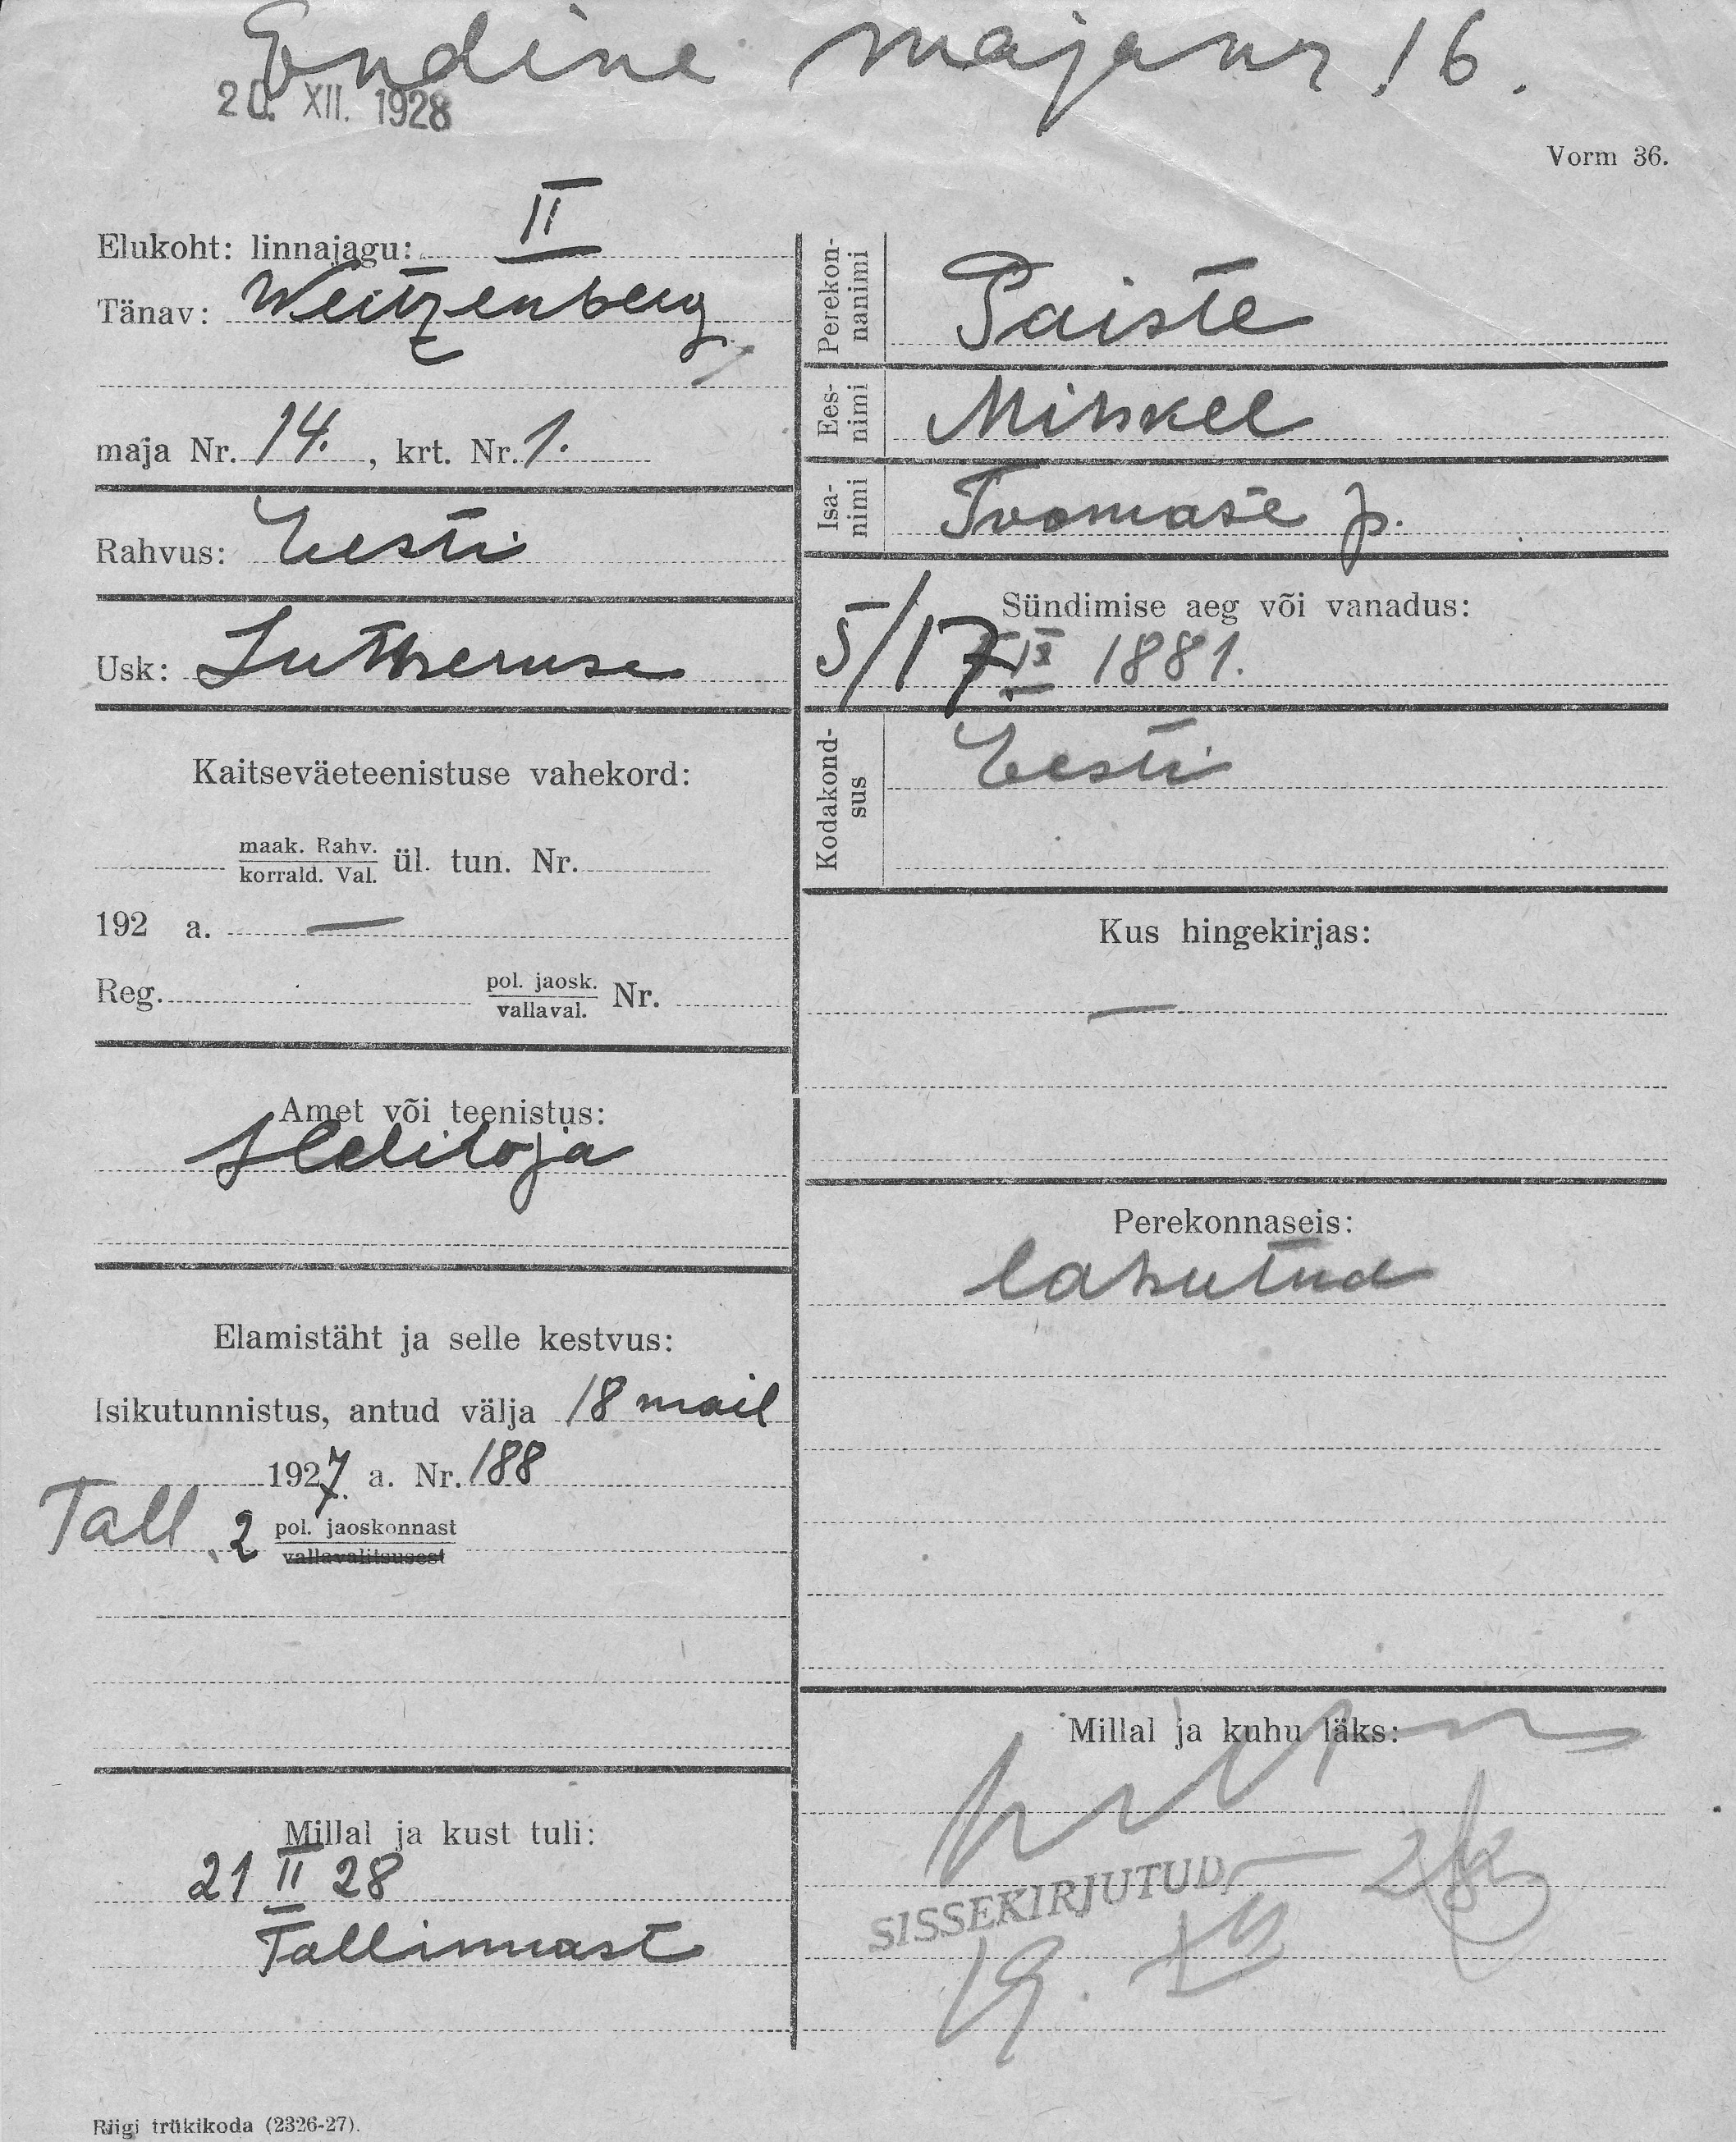 Endine majanr 16.
20. XII. 1928
Vorm 36.
Elukoht: linnajagu: II
Tänav: Weitzenberg
maja Nr. 14. , krt. Nr. 1.
Rahvus: Eesti
Usk: Lutheruse
Kaitseväeteenistuse vahekord:
maak. Rahv.
korrald. Val. ül. tun. Nr.
192 a. —
Reg. pol. jaosk.
vallaval. Nr.
Amet või teenistus:
Helilooja
Elamistäht ja selle kestvus:
Isikutunnistus, antud välja 18 mail
1927. a. Nr. 188
Tall. 2 pol. jaoskonnast
vallavalitsusest
Millal ja kust tuli:
21 II 28
Tallinnast
Perekon-
nanimi Paiste
Ees-
nimi Mihkel
Isa-
nimi Toomase p.
Sündimise aeg või vanadus:
5/17 IX 1881.
Kodakond-
sus Eesti
Kus hingekirjas:
—
Perekonnaseis:
lahutud
Millal ja kuhu läks:
SISSEKIRJUTUD
19. XII 28
Riigi trükikoda (2326-27).